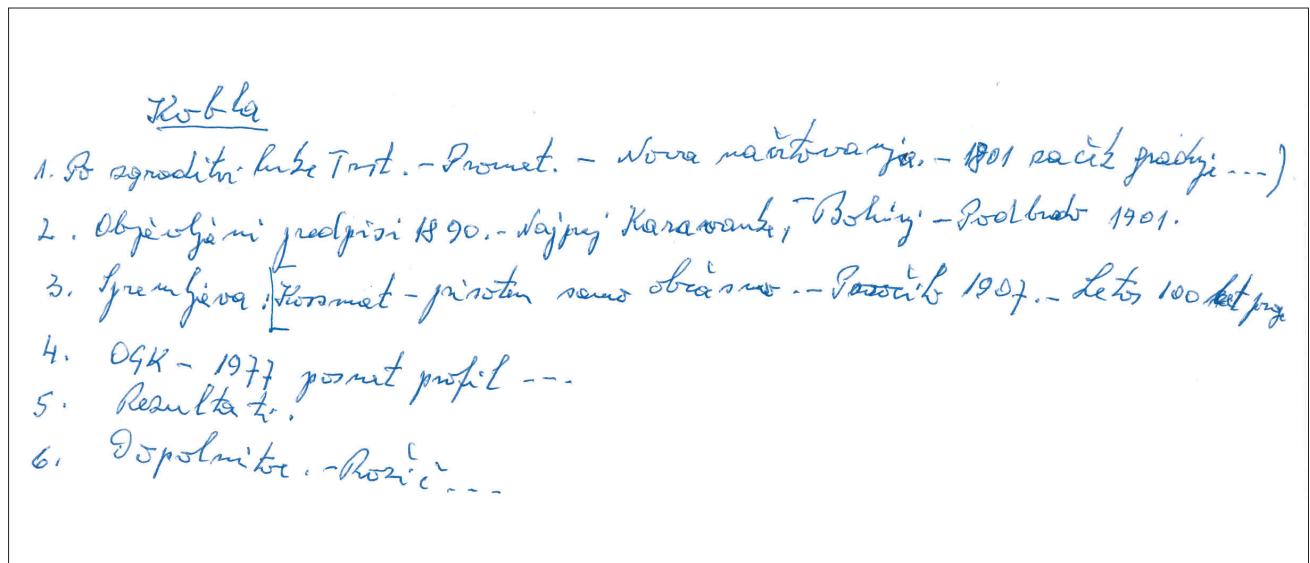 Kobla
1. Po zgraditvi luke Trst. - Promet. - Nova načrtovanja. - 1901 začek gradnje ...)
2. Objavljeni predpisi 1890. - Najprej Karavanke, Bohinj - Podbrdo 1901.
3. Spremljava. [Kossmat - prisoten samo občasno. - Poročilo 1907. - Letos 100 let proge
4. OGK - 1977 posnet profil ---
5. Rezultati.
6. Dopolnitve. - Rožič ---